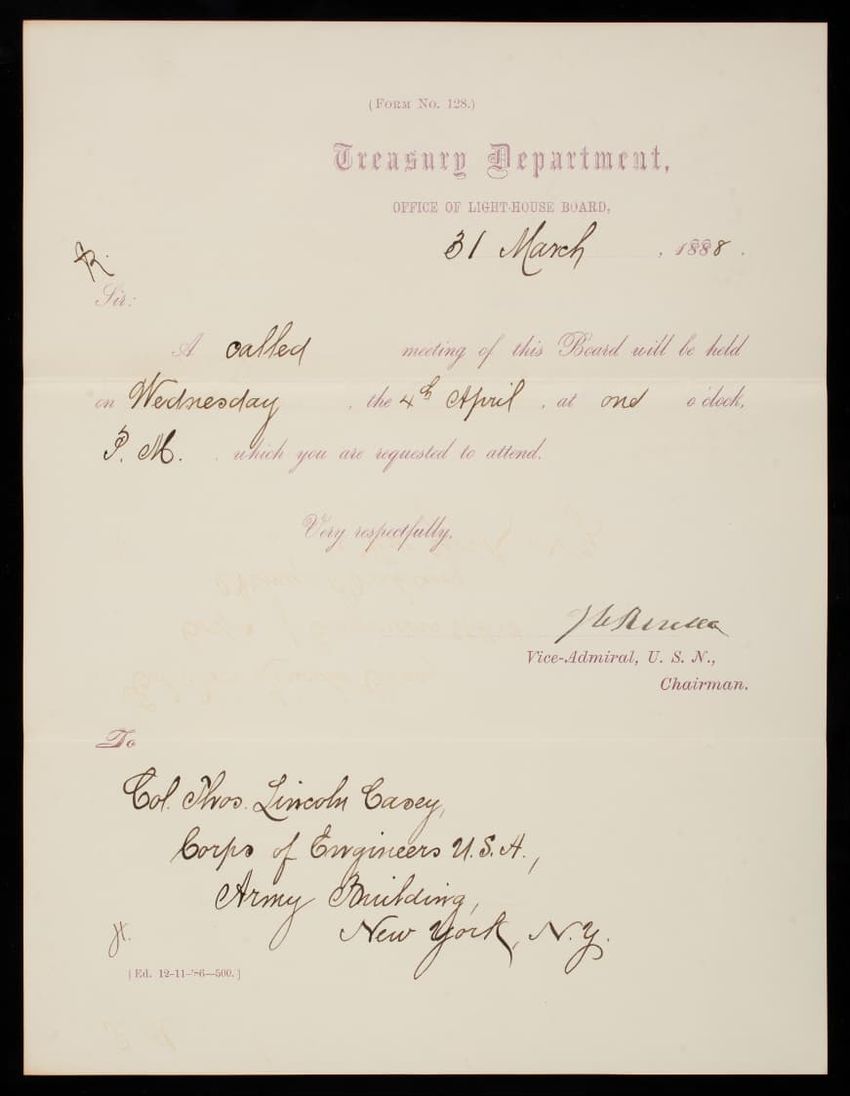 (Form No. 128.)
Treasury Department,
OFFICE OF LIGHT-HOUSE BOARD,
31 March, 1888.
R.
Sir:
A called meeting of this Board will be held
on Wednesday, the 4th April, at one o'clock,
P. M. which you are requested to attend.
Very respectfully,
Vice-Admiral, U. S. N.,
Chairman.
To
Col. Thos. Lincoln Casey,
Corps of Engineers U.S.A.,
Army Building,
New York, N.Y.
[Ed. 12-11-'86—500.]